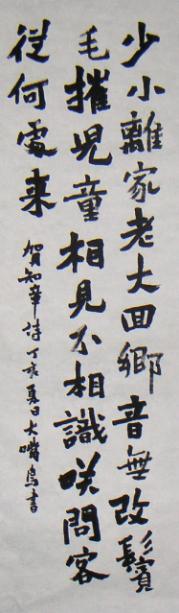 少小離家老大回鄉音無改鬢
毛摧児童相見不相識咲問客
從何處来
賀知章诗丁亥夏日大嘴鳥書